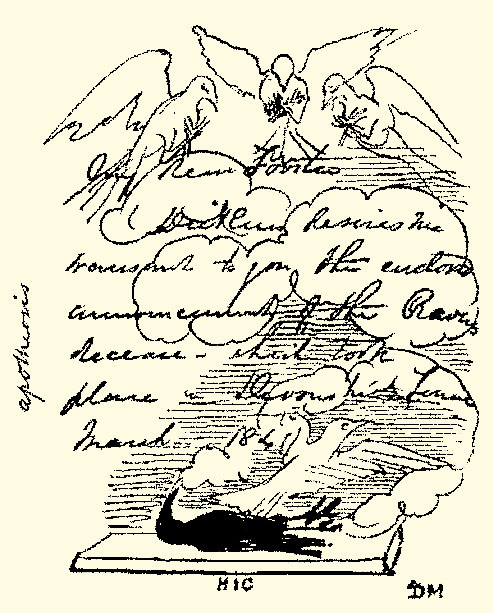 My dear Forster
Dickens desires me
transmit to you the enclosed
announcement of the Raven's
decease - which took
place in Devonshire Terrace
March 1841
apotheosis
HIC
DM